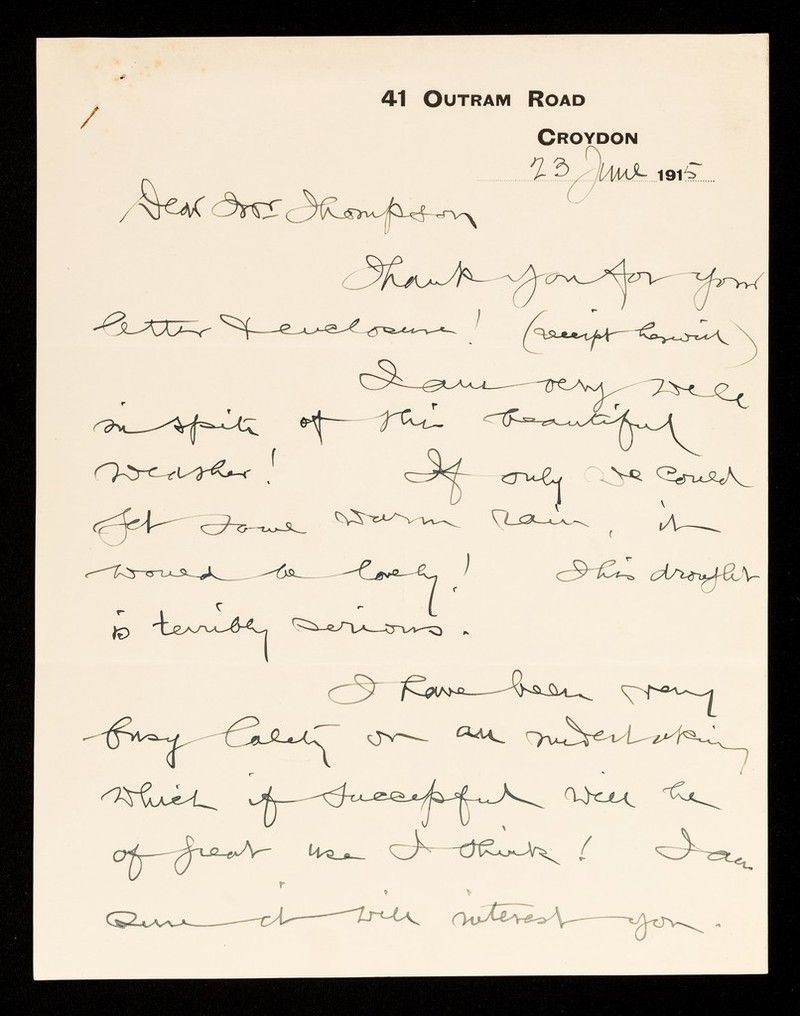 41 OUTRAM ROAD
CROYDON
23 June 1915
Dear Mr. Thompson
Thank you for your
letter & enclosure! (receipt herewith)
I am very well
in spite of this beautiful
weather! If only we could
get some warm rain, it
would be lovely! This drought
is terribly serious.
I have been very
busy lately on an undertaking
which if successful will be
of great use I think! I am
sure it will interest you.